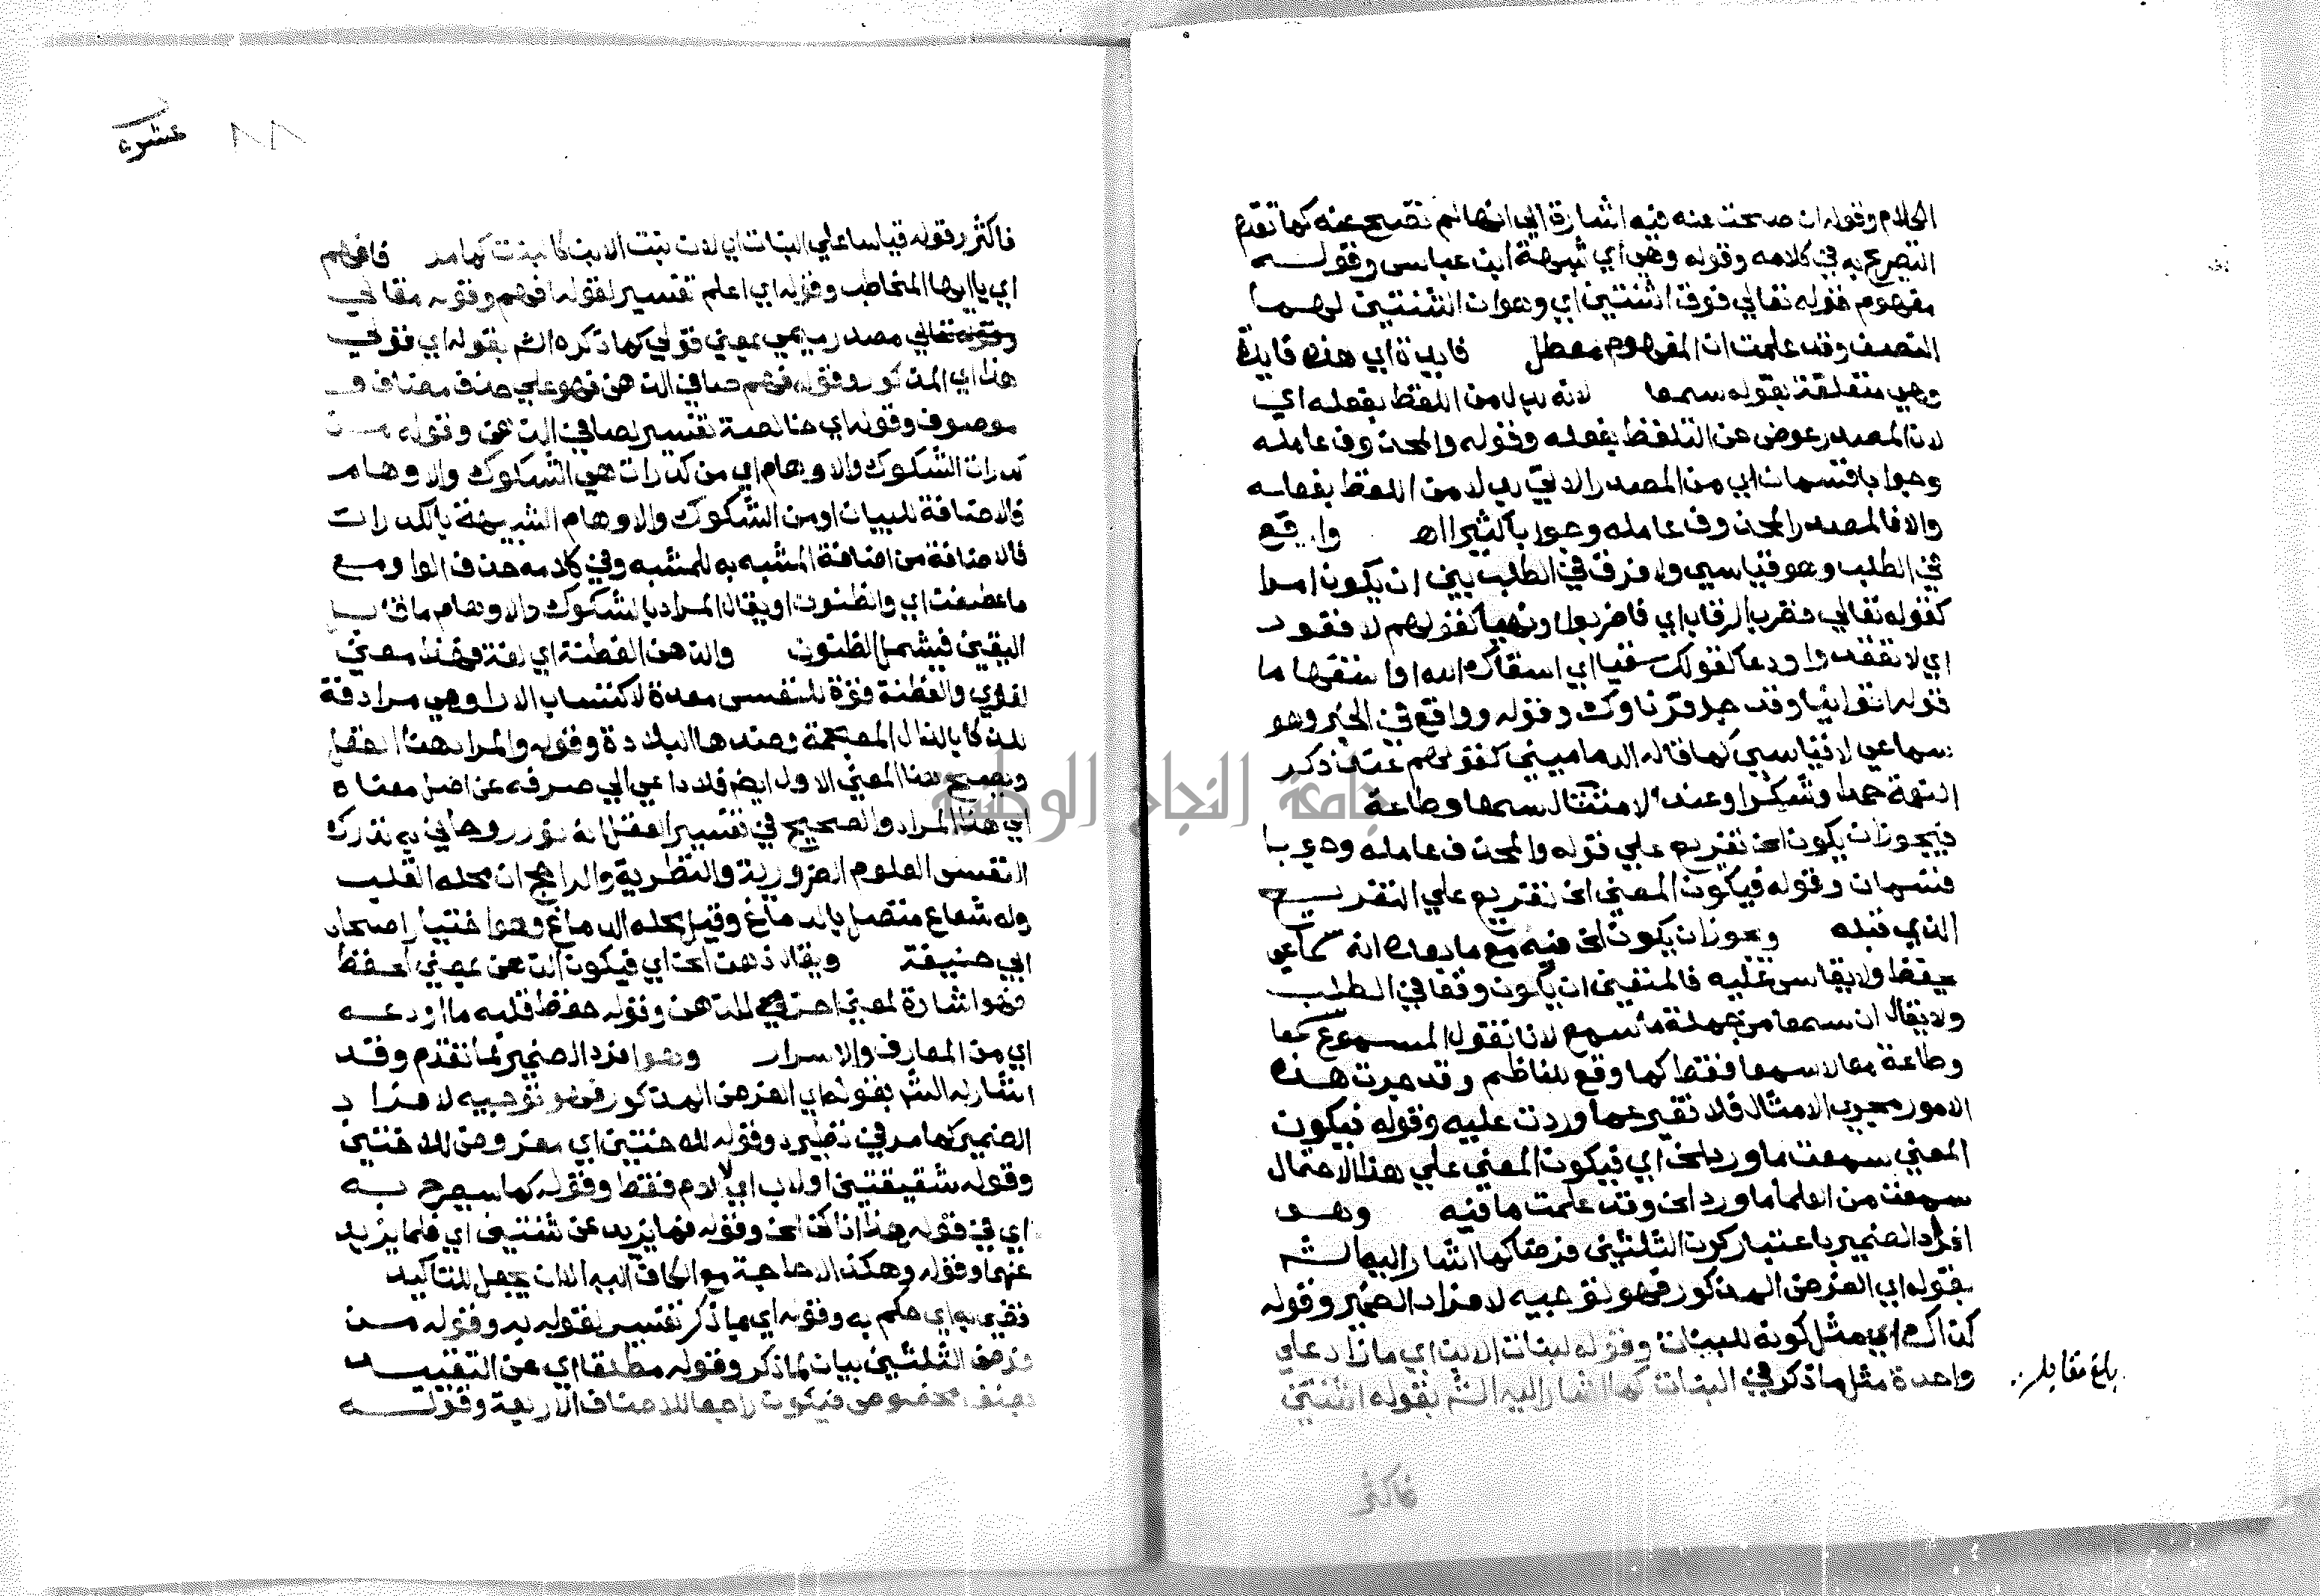 الكلام وقوله ان صحت عنه فيه اشارة الي انها لم تصح عنه كما تقدم
التصريح به في كلامه وقوله وهي اي شبهة ابن عباس وقولـــه
مفهوم قوله تعالي فوق اثنتين اي وهو ان الثنتين لهمــا
النصف وقد علمت ان المفهوم معطل فايدة اي هذه فايدة
وهي متعلقة بقوله سمعا لانه بدل من اللفظ بفعله اي
لان المصدر عوض عن التلفظ بفعله وقوله والمحذوف عامله
وجوبا قسمان اي من المصدر الاتي بدلا من اللفظ بفعله
والا فالمصدر المحذوف عامله وجوبا كثير اهـ واقع
في الطلب وهو قياسي ولا فرق في الطلب بين ان يكون امرا
كقوله تعالي فضرب الرقاب اي فاضربوا او نهيا كقولهم لا فقود
اي لا تقعد او دعا كقولك سقيا اي اسقاك الله
وقوله وواقع في الخبر وهو
سماعي لا قياسي كما قاله الدماميني كقولهم عند ذكر
النعمة حمدا وشكرا وعند الامتثال سمعا وطاعة
فيجوز ان يكون الخ تفريع علي قوله والمحذوف عامله وجوبا
قسمان وقوله فيكون المعني الخ تفريع علي التفريــع
الذي قبله ويجوز ان يكون الخ فيه مع ما بعده انه سماعي
يحفظ ولا يقاس عليه فالمتعين ان يكون وقعا في الطلب
ولا يقال ان سمعا من جملة ما سمع لانا نقول المسموع سمعا
وطاعة معا لا سمعا فقط كما وقع للناظم وقد جرت هذه
الامور مجري الامثال فلا تغير عما وردت عليه وقوله فيكون
المعني سمعت ما ورد الخ اي فيكون المعني علي هذا الاحتمال
سمعت من العلما ما ورد الخ وقد علمت ما فيه وهــو
افراد الضمير باعتبار كون الثلثين فرضا كما اشار اليه الشــم
بقوله اي الفرض المذكور فهو توجيه لافراد الضمير وقوله
كذاكم اي مثل كونه للبنات وقوله لبنات الابن اي ما زاد علي
واحدة مثل ما ذكر في البنات كما اشار اليه الشم بقوله اثنتين
بلغ مقابلة
فاكثر
فاكثر وقوله قياسا علي البنات اي لان بنت الابن كالبنت كما مر فافهم
اي يا ايها المخاطب وقوله اي اعلم تفسير لقوله افهم وقوله مقالي
مصدر ميمي بمعني قولي كما ذكره الشم بقوله اي قولي
هذا اي المذكور وقوله فهم صافي الذهن فهو علي حذف مضاف
موصوف وقوله اي خالصه تفسير لصافي الذهن وقوله مــن
كدرات الشكوك والاوهام اي من كدرات هي الشكوك والاوهام
فالاضافة للبيان او من الشكوك والاوهام الشبيهة بالكدرات
فالاضافة من اضافة المشبه به للمشبه وفي كلامه حذف الواو مع
ما عطفت اي والظنون او يقال المراد بالشكوك والاوهام ما قابل
اليقين فيشمل الظنون والذهن الفطنة اي لغة فهذا معني
لغوي والفطنة قوة للنفس معدة لاكتساب الارا وهي مرادفة
للذكا بالذال المعجمة وضدها البلادة وقوله والمراد هنا العقل
ويصح هنا المعني الاول ايض فلا داعي الي صرفه عن اصل معناه
اي هذا المراد والصحيح في تفسير العقل انه نور روحاني به تدرك
النفس العلوم الضرورية والنظرية والراجح ان محله القلب
وله شعاع متصل بالدماغ وقيل محله الدماغ وهو اختيار اصحاب
ابي حنيفة ويقال ذهن الخ اي فيكون الذهن بمعني الحفظ
فهو اشارة لمعني اخر للذهن وقوله حفظ قلبه ما اودعــه
اي من المعارف والاسرار وهو افرد الضمير لما تقدم وقد
اشار له الشم بقوله اي الفرض المذكور فهو توجيه لافراد
الضمير كما مر في نظيره وقوله للاختين اي يعني فرض للاختين
وقوله شقيقتين او لاب اي لا لام فقط وقوله كما سيصرح به
اي في قوله هذا اذا كن الخ وقوله فما يزيد عن ثنتين اي فلما يزيد
عنهما وقوله وهكذا لا حاجة مع الحاق اليه الا ان يجعل للتاكيد
قضي به اي حكم به وقوله اي بما ذكر تفسير لقوله به وقوله مــن
فرض الثلثين بيان لما ذكر وقوله مطلقا اي عن التقييــد
بصنف مخصوص فيكون راجعا للاصناف الاربعة وقولــه